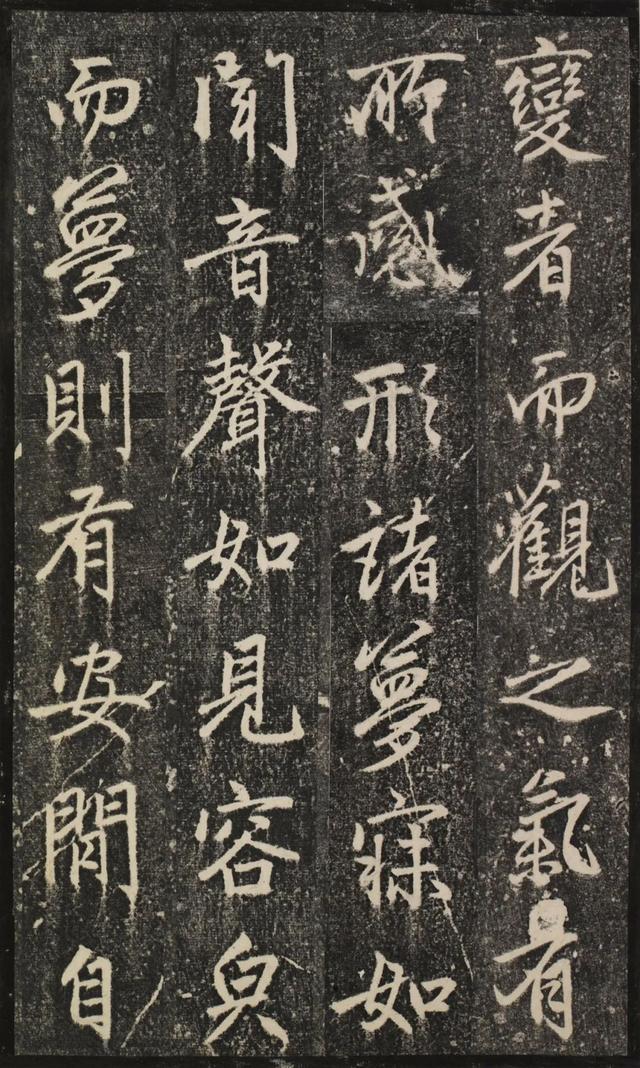 變者而觀之氣有
所感形諸夢寐如
聞音聲如見容皃
而夢則有安閒自